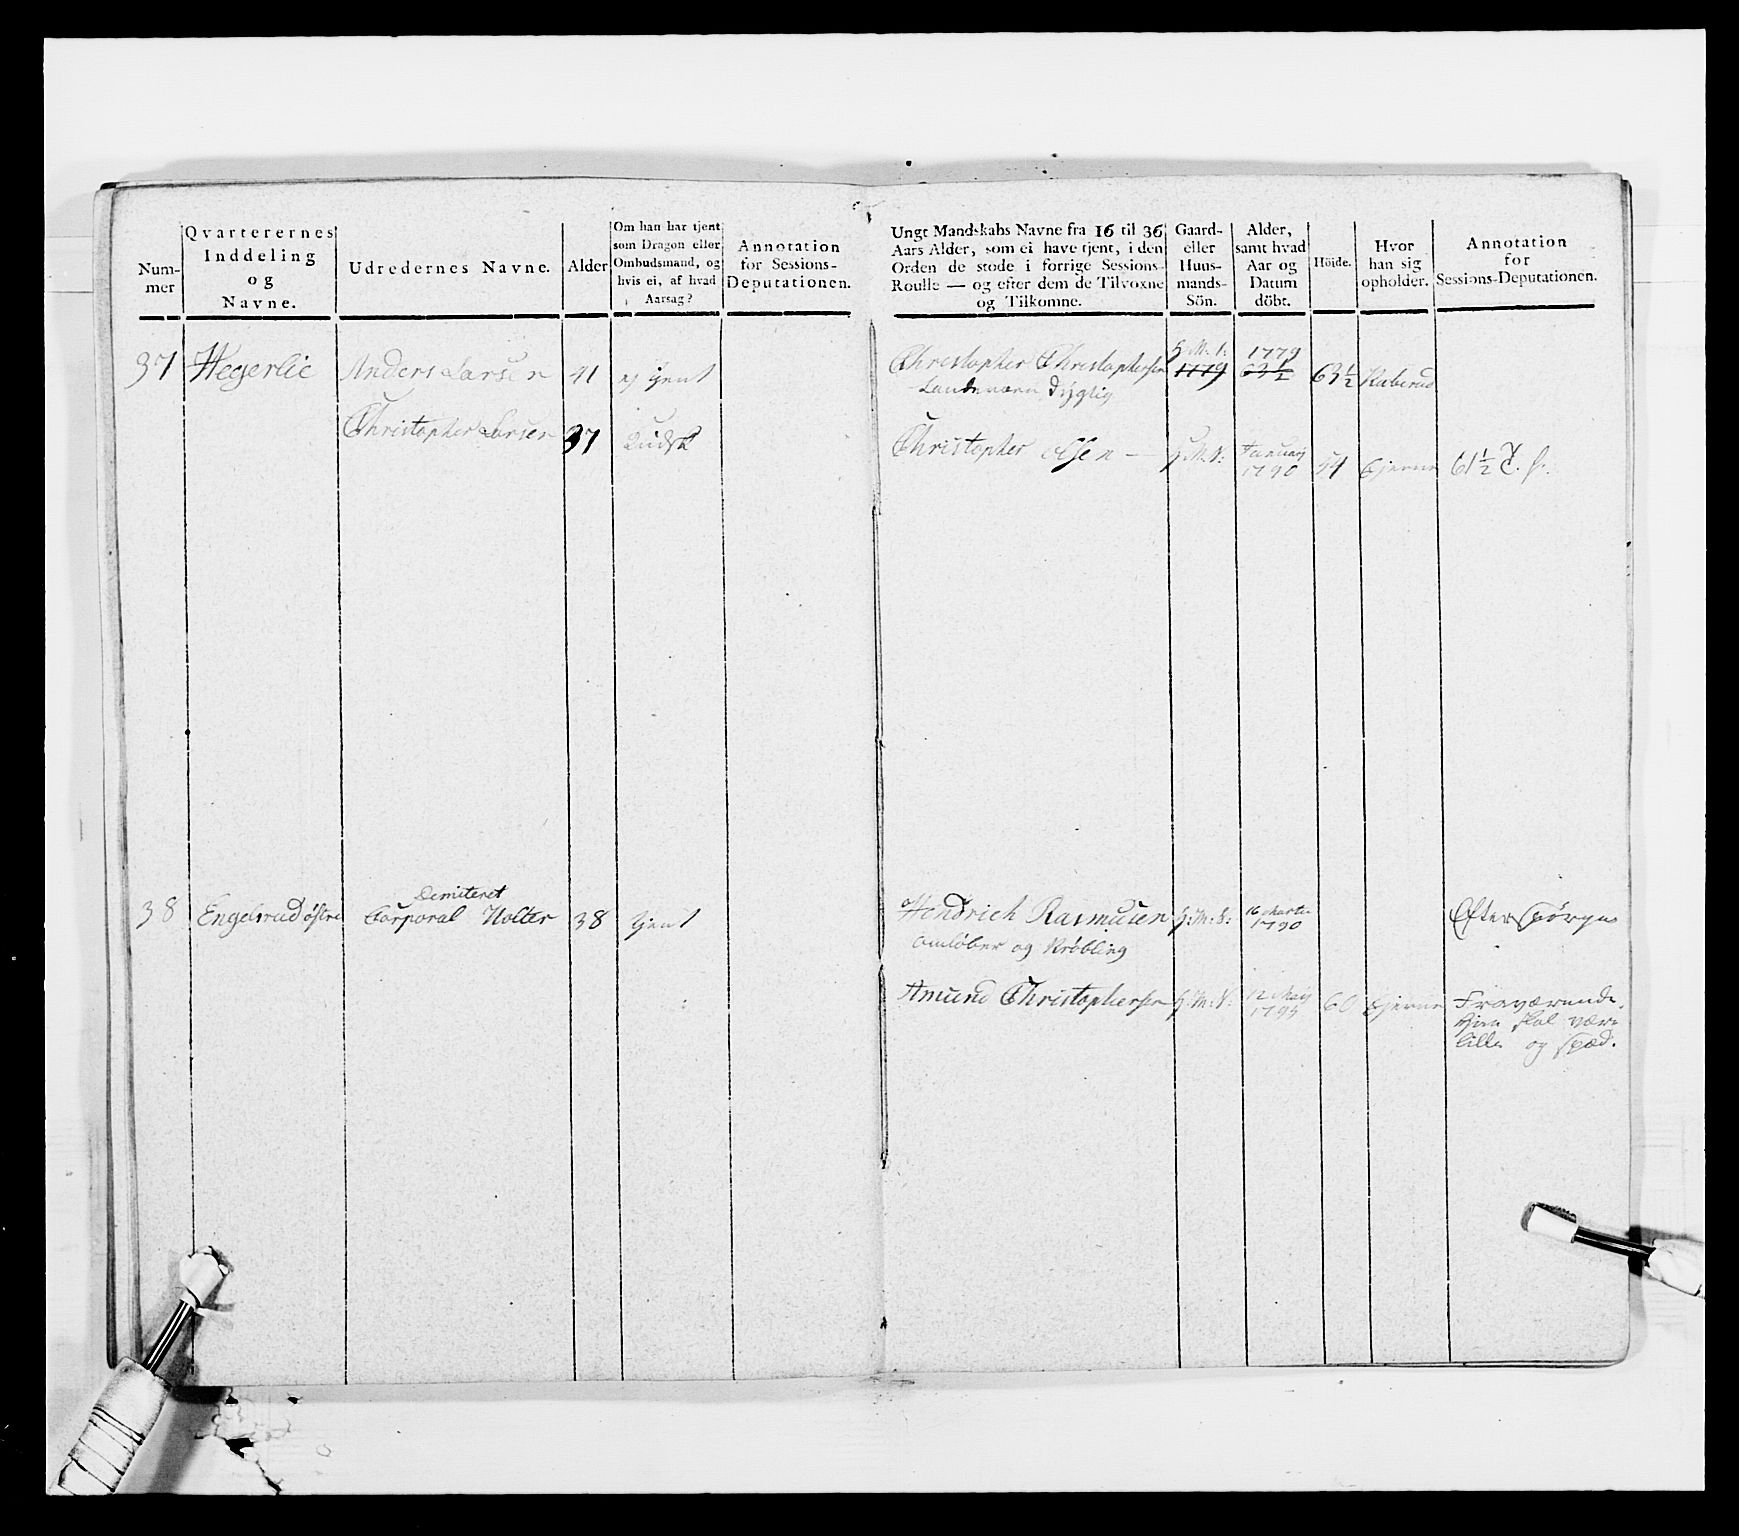 Num-
mer
Qvarterernes
Inddeling
og
Navne.
Udredernes Navne.
Alder
Om han har tjent
som Dragon eller
Ombudsmand, og
hvis ei, af hvad
Aarsag?
Annotation
for Sessions-
Deputationen.
Ungt Mandskabs Navne fra 16 til 36
Aars Alder, som ei have tjent, i den
Orden de stode i forrige Sessions-
Roulle — og efter dem de Tilvoxne
og Tilkomne.
Gaard-
eller
Huus-
mands-
Sön.
Alder,
samt hvad
Aar og
Datum
döbt.
Höide.
Hvor
han sig
opholder.
Annotation
for
Sessions-Deputationen.
37 Hegerlie Anders Larsen 41 ej tjent
Christopher Larsen 37
Christopher Christophersen 1779 63½
Landeværn dygtig
Christopher Olsen — Januarij 1790 Hjemme 61½
38 Engelsrud østre Demiteret
Corporal Holter 38 tjent
Hendrich Rasmusen H:M:S: 16 Martii 1790 Efterspørges
omløber og Krøbling
Amund Christophersen H:M:S: 12 Maij 60 Hjemme Fraværende,
skal være
lille og spæd.